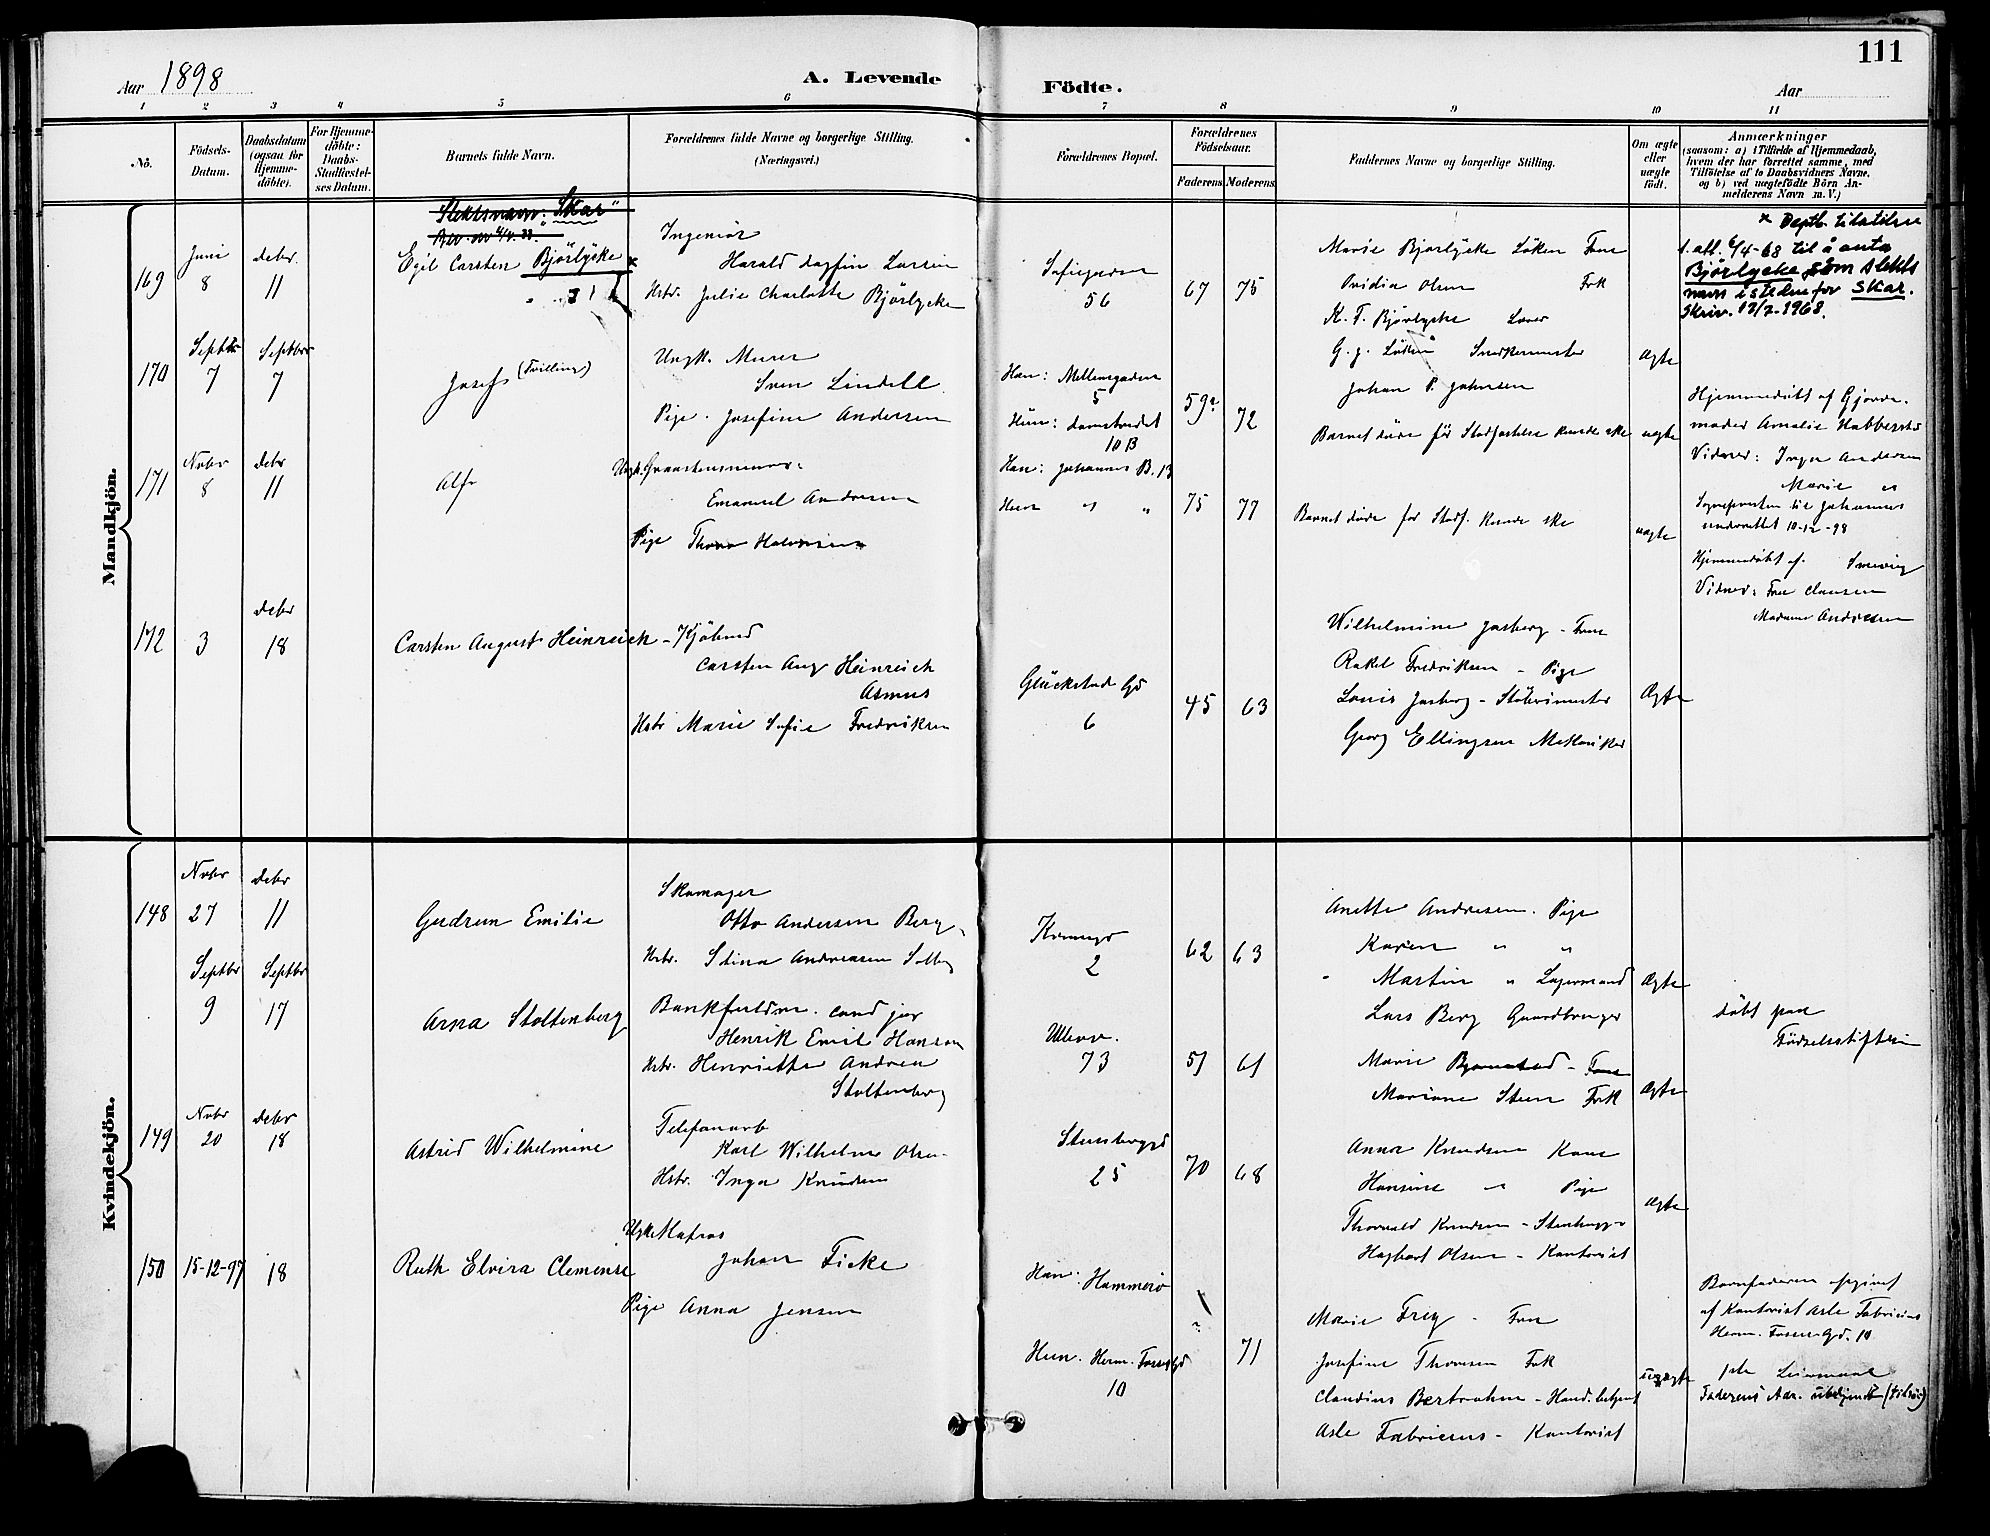 111
Aar 1898
A. Levende
Födte.
Aar
1 2 3 4 5 6 7 8 9 10 11
No.
Födsels-Datum.
Daabsdatum (ogsaa for Hjemme-döbte).
For Hjemme-döbte: Daabs-Stadfæstel-ses Datum.
Barnets fulde Navn.
Forældrenes fulde Navne og borgerlige Stilling. (Næringsvei.)
Forældrenes Bopæl.
Forældrenes Födselsaar.
Faderens Moderens
Faddernes Navne og borgerlige Stilling.
Om ægte eller uægte födt.
Anmærkninger
(saasom: a) i Tilfælde af Hjemmedaab, hvem der har forrettet samme, med Tilföielse af to Daabsvidners Navne, og b) ved uægtefödte Börn An-melderens Navn m. V.)
Mandkjön.
Slektsnavn: "Skar"
169 Juni 8 Debr. 11
Egil Carsten Bjørlycke
Ingeniør
Harald Dagfin Larsen
Hstr. Julie Charlotte Bjørlycke
Sofiegaden 56
67 75
Marie Bjørlycke Løken Frue
Ovidia Olsen Frk
K. F. Bjørlycke
G. J. Løken Snedkermester
Johan P. Johnsen
Ægte
* Deptb. tillatelse
6/4-68 til å anta
Bjørlycke som slekts
navn istedenfor Skar.
Skriv. 13/7-1968.
170 Septbr 7 Septbr 7
Josef (Tvilling)
Ungk. Murer
Sven Lindell
Pige. Josefine Andersen
Han: Møllersgaden 5
Hun: Damstredet 10 B
59? 72
Barnet døde før Stadfæstelse kunde ske
uægte
Hjemmedøbt af Gjorde-
moder Amalie
Vidner: Inga Andersen
Marie "
171 Nobr 8 Debr 11
Alf
Ungk.
Emanuel Andersen
Pige Thora Halvorsen
Han: Johannes B. 13
Hun " "
75 77
Barnet døde før Stadf. kunde ske
uægte
Sognepresten til Johannes
underrettet 10-12-98
Hjemmedøbt af
Vidner: Frue Clausen
Madame Andersen
172 3 Debr 18
Carsten August Heinreich
Kjøbmd
Carsten Aug Heinreich
Asmus
Hstr Marie Sofie Fredriksen
Glückstad Gd 6
45 63
Wilhelmine Jasberg - Frue
Rakel Fredriksen - Pige
Louis Jasberg - Støberimester
Georg Ellingsen Mekaniker
Ægte
Kvindekjön.
148 Nobr 27 Debr 11
Gudrun Emilie
Skomager
Otto Andersen Berg
Hstr. Stina Andreasen Solberg
2
62 63
Anette Andresen. Pige
Karen " "
Martin " Lagermand
Lars Berg Gaardbruger
Ægte
Septbr 9 Septbr 17
Arna Stoltenberg
Bankfuldm. cand jur
Henrik Emil Hanson
Hstr. Henriette Andrea
Stoltenberg
Ullevv. 73
51 61
Marie Bjørnstad - Frue
Mariane Steen Frk
Ægte
Døbt paa
Fødselsstiftelsen
149 Nobr 20 Debr 18
Astrid Wilhelmine
Telefonarb
Karl Wilhelm Olsen
Hstr. Inga Knudsen
Stensberggd 25
70 68
Anna Knudsen Kone
Hansine " Pige
Thorvald Knudsen - Stenhugger
Hagbart Olsen - Kontorist
Ægte
150 15-12-97 18
Ruth Elvira Clemense
Ungk Matros
Johan Ficke
Pige Anna Jensen
Han: Hammerø
Hun. Herm. Fossgd 10
? 71
Marie Frey - Frue
Josefine Thoresen Frk
Claudius Bertrahm - Hand.betjent
Asle Fabricius - Kontorist
uægte
Barnefaderen opgivet
af Kontorist Asle Fabricius
Herm. Fossens Gd. 10
1ste Leiermaal
Faderens Aar. ubekjendt (tilsøs)